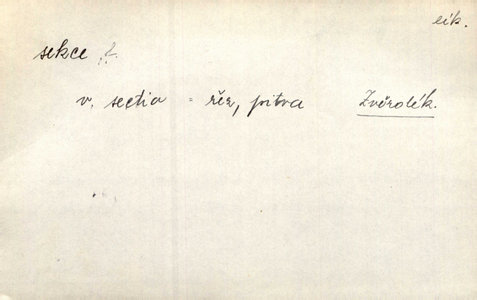 lék.
sekce, ž.
v. sectio = řez, pitva Zvěrolék.